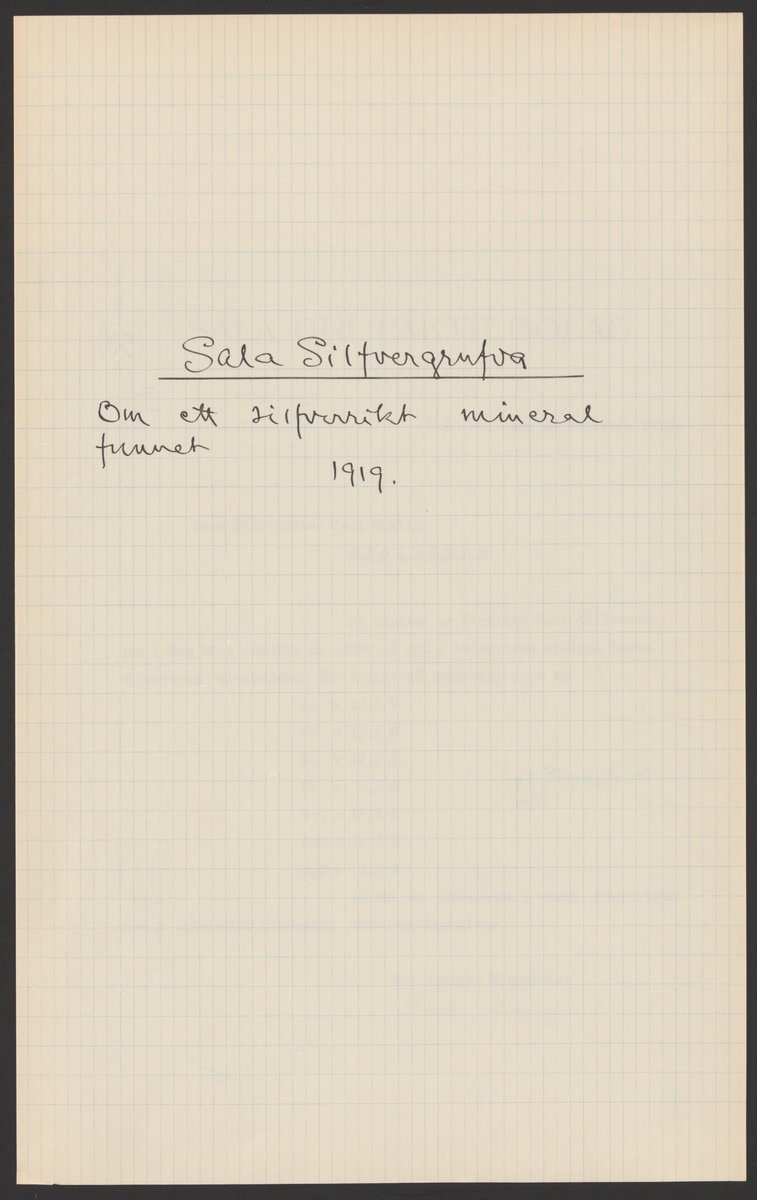 Sala Silfvergrufva
Om ett silfverrikt mineral
funnet
1919.